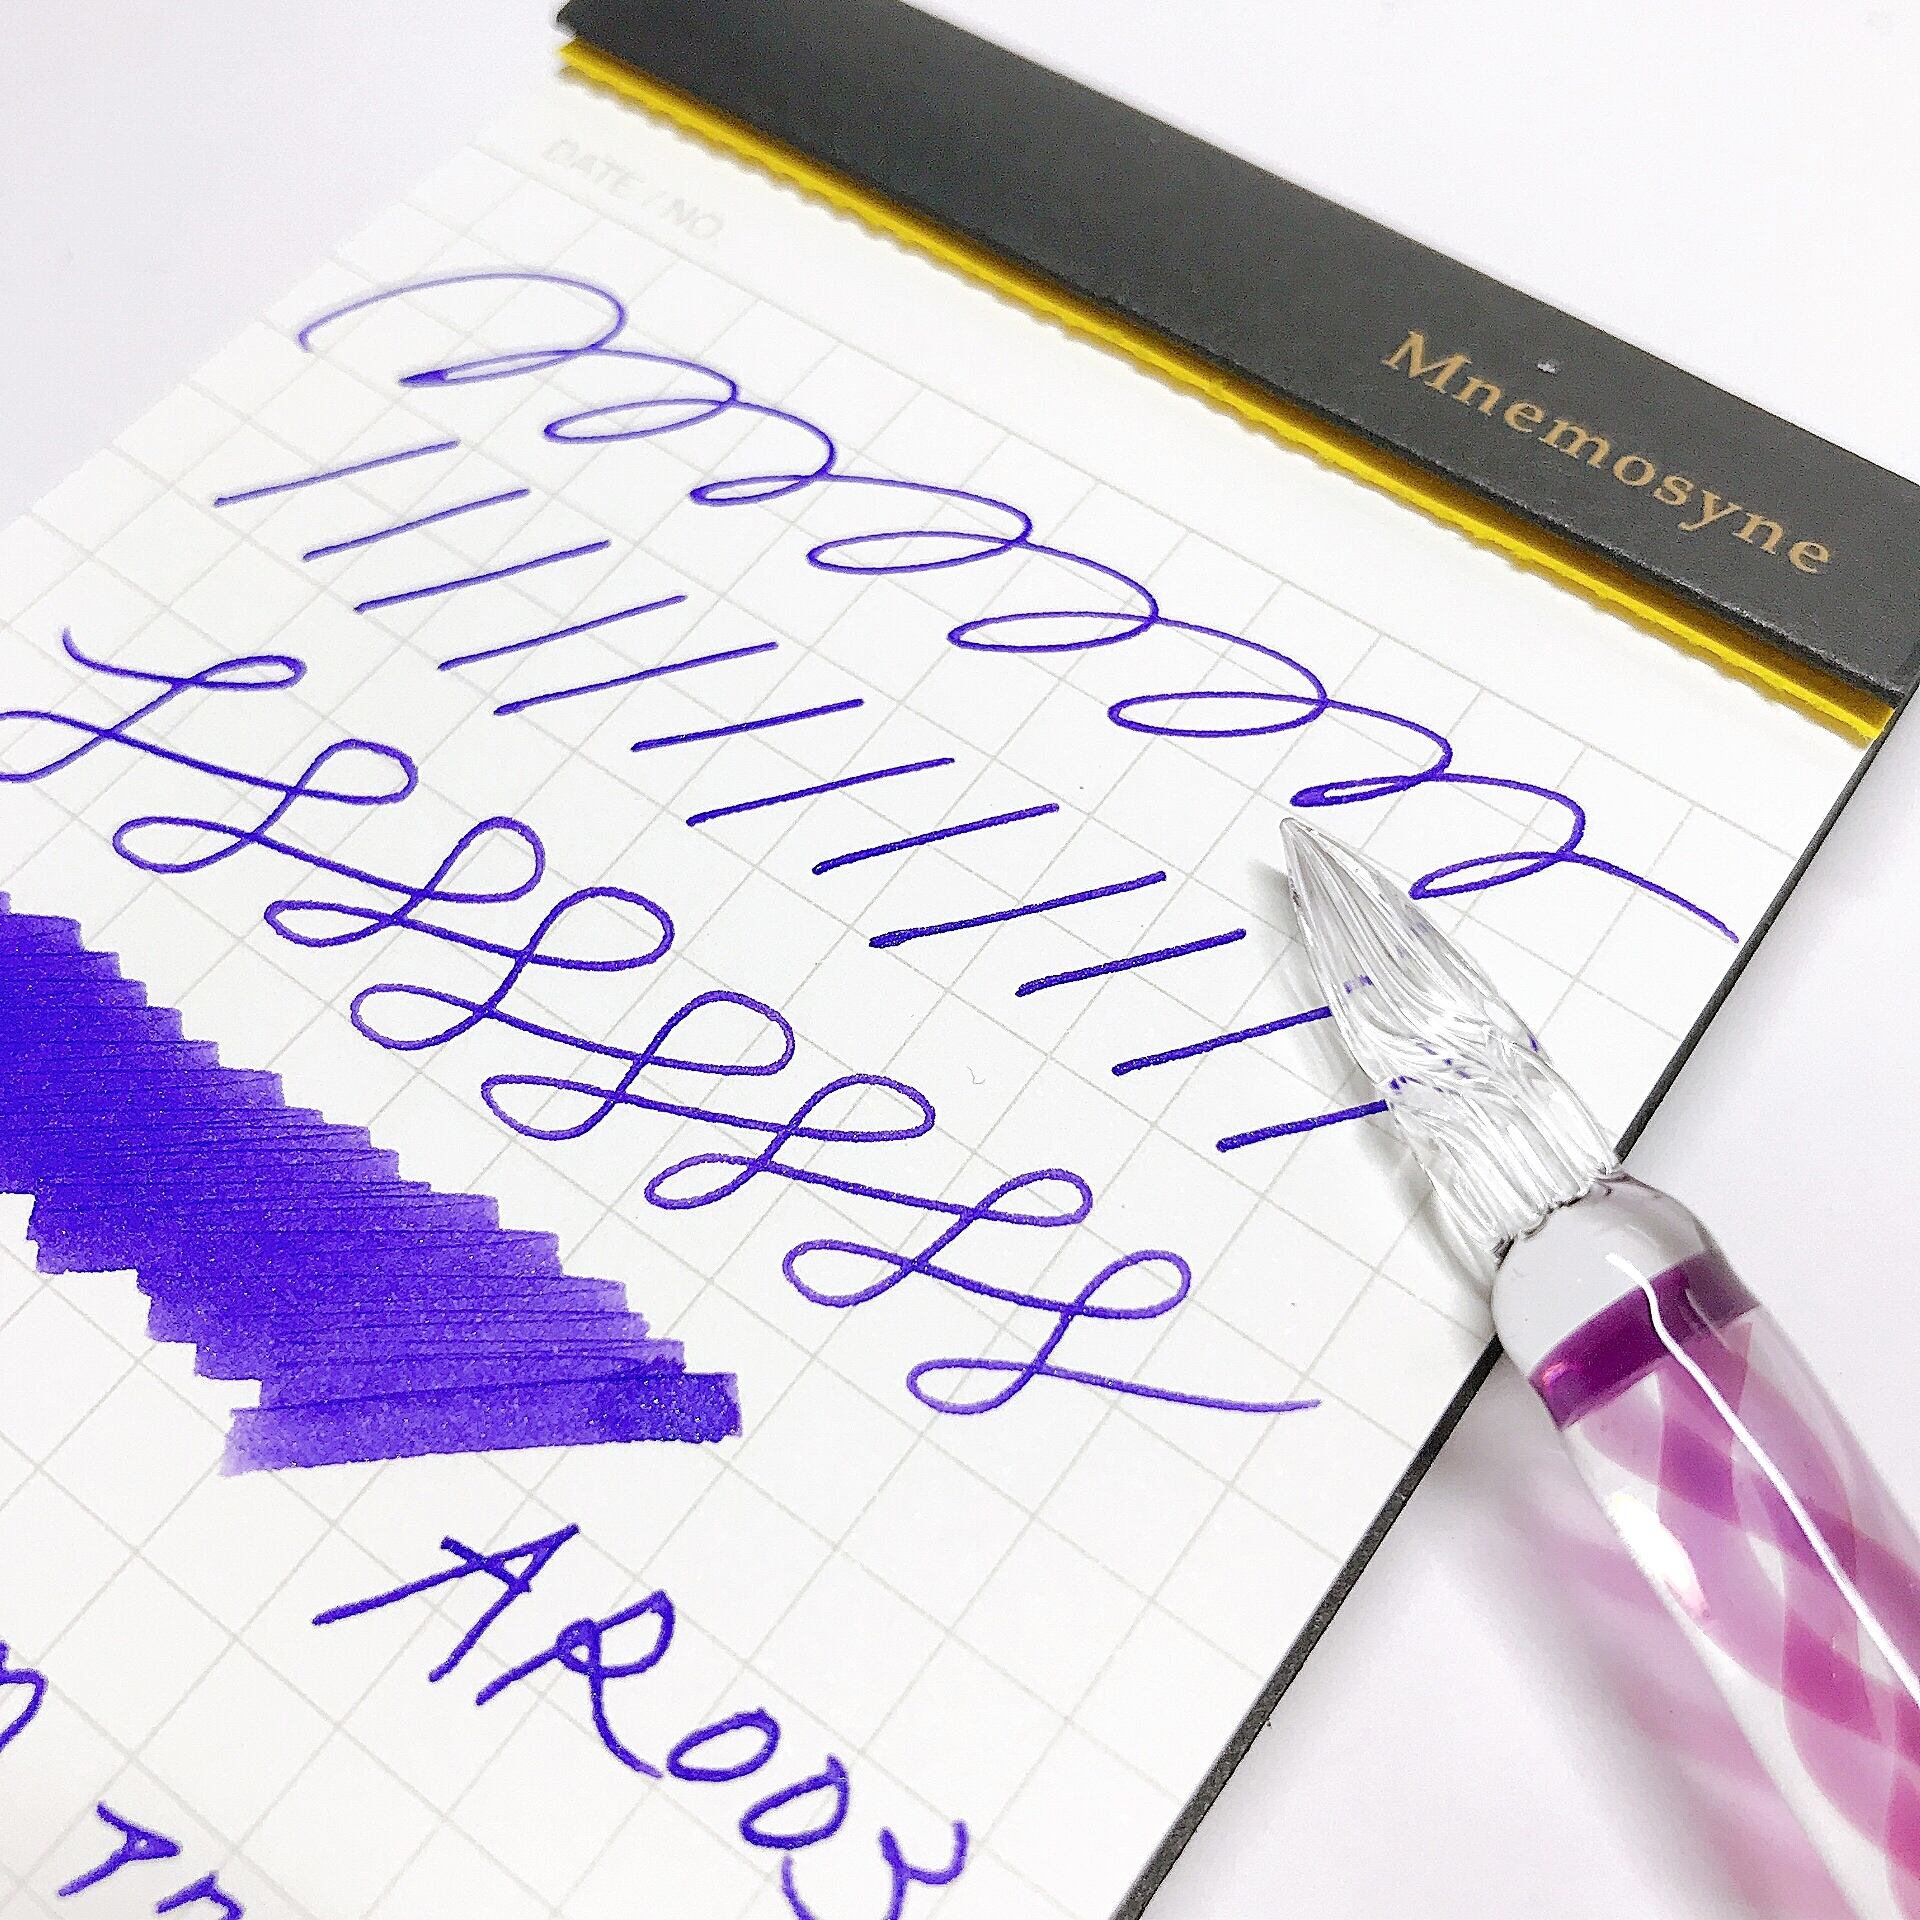 Mnemosyne
DATE / NO.
AR003